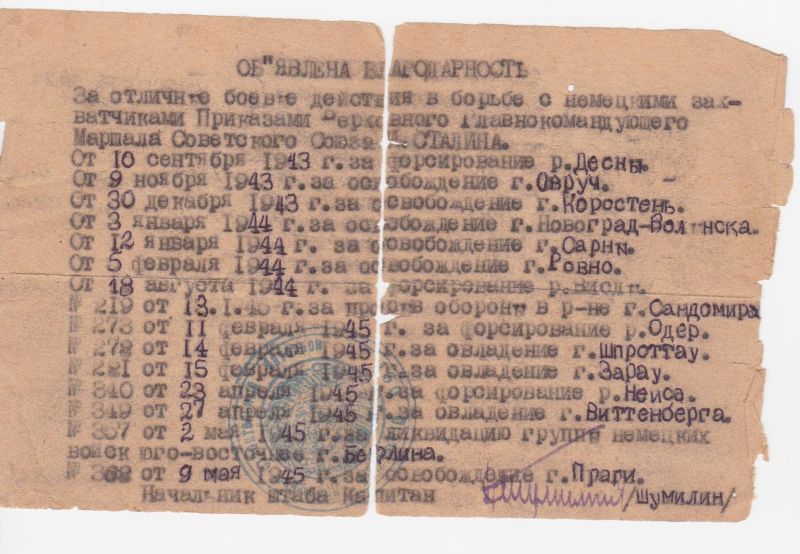 ОБ"ЯВЛЕНА БЛАГОДАРНОСТЬ
За отличные боевые действия в борьбе с немецкими зах-
ватчиками Приказами Верховного Главнокомандующего
Маршала Советского Союза И. СТАЛИНА.
От 16 сентября 1943 г.за форсирование р.Десны.
От 9 ноября 1943 г.за освобождение г.Овруч.
От 30 декабря 1943 г.за освобождение г.Коростень.
От 3 января 1944 г.за освобождение г.Новоград-Волынска.
От 12 января 1944 г.за освобождение г.Сарны.
От 5 февраля 1944 г.за освобождение г.Ровно.
От 18 августа 1944 г.за форсирование р.Вислы.
№ 219 от 13.1.45 г.за прорыв обороны в р-не г.Сандомира
№ 273 от 11 февраля 1945 г. за форсирование р.Одер.
№ 279 от 14 февраля 1945 г.за овладение г.Шпроттау.
№ 281 от 15 февраля 1945 г.за овладение г.Зарау.
№ 340 от 23 апреля 1945 г.за форсирование р.Нейса.
№ 349 от 27 апреля 1945 г.за овладение г.Виттенберга.
№ 357 от 2 мая 1945 г.за ликвидацию группы немецких
войск юго-восточнее г.Берлина.
№ 368 от 9 мая 1945 г.за освобождение г.Праги.
Начальник штаба Капитан /Шумилин/